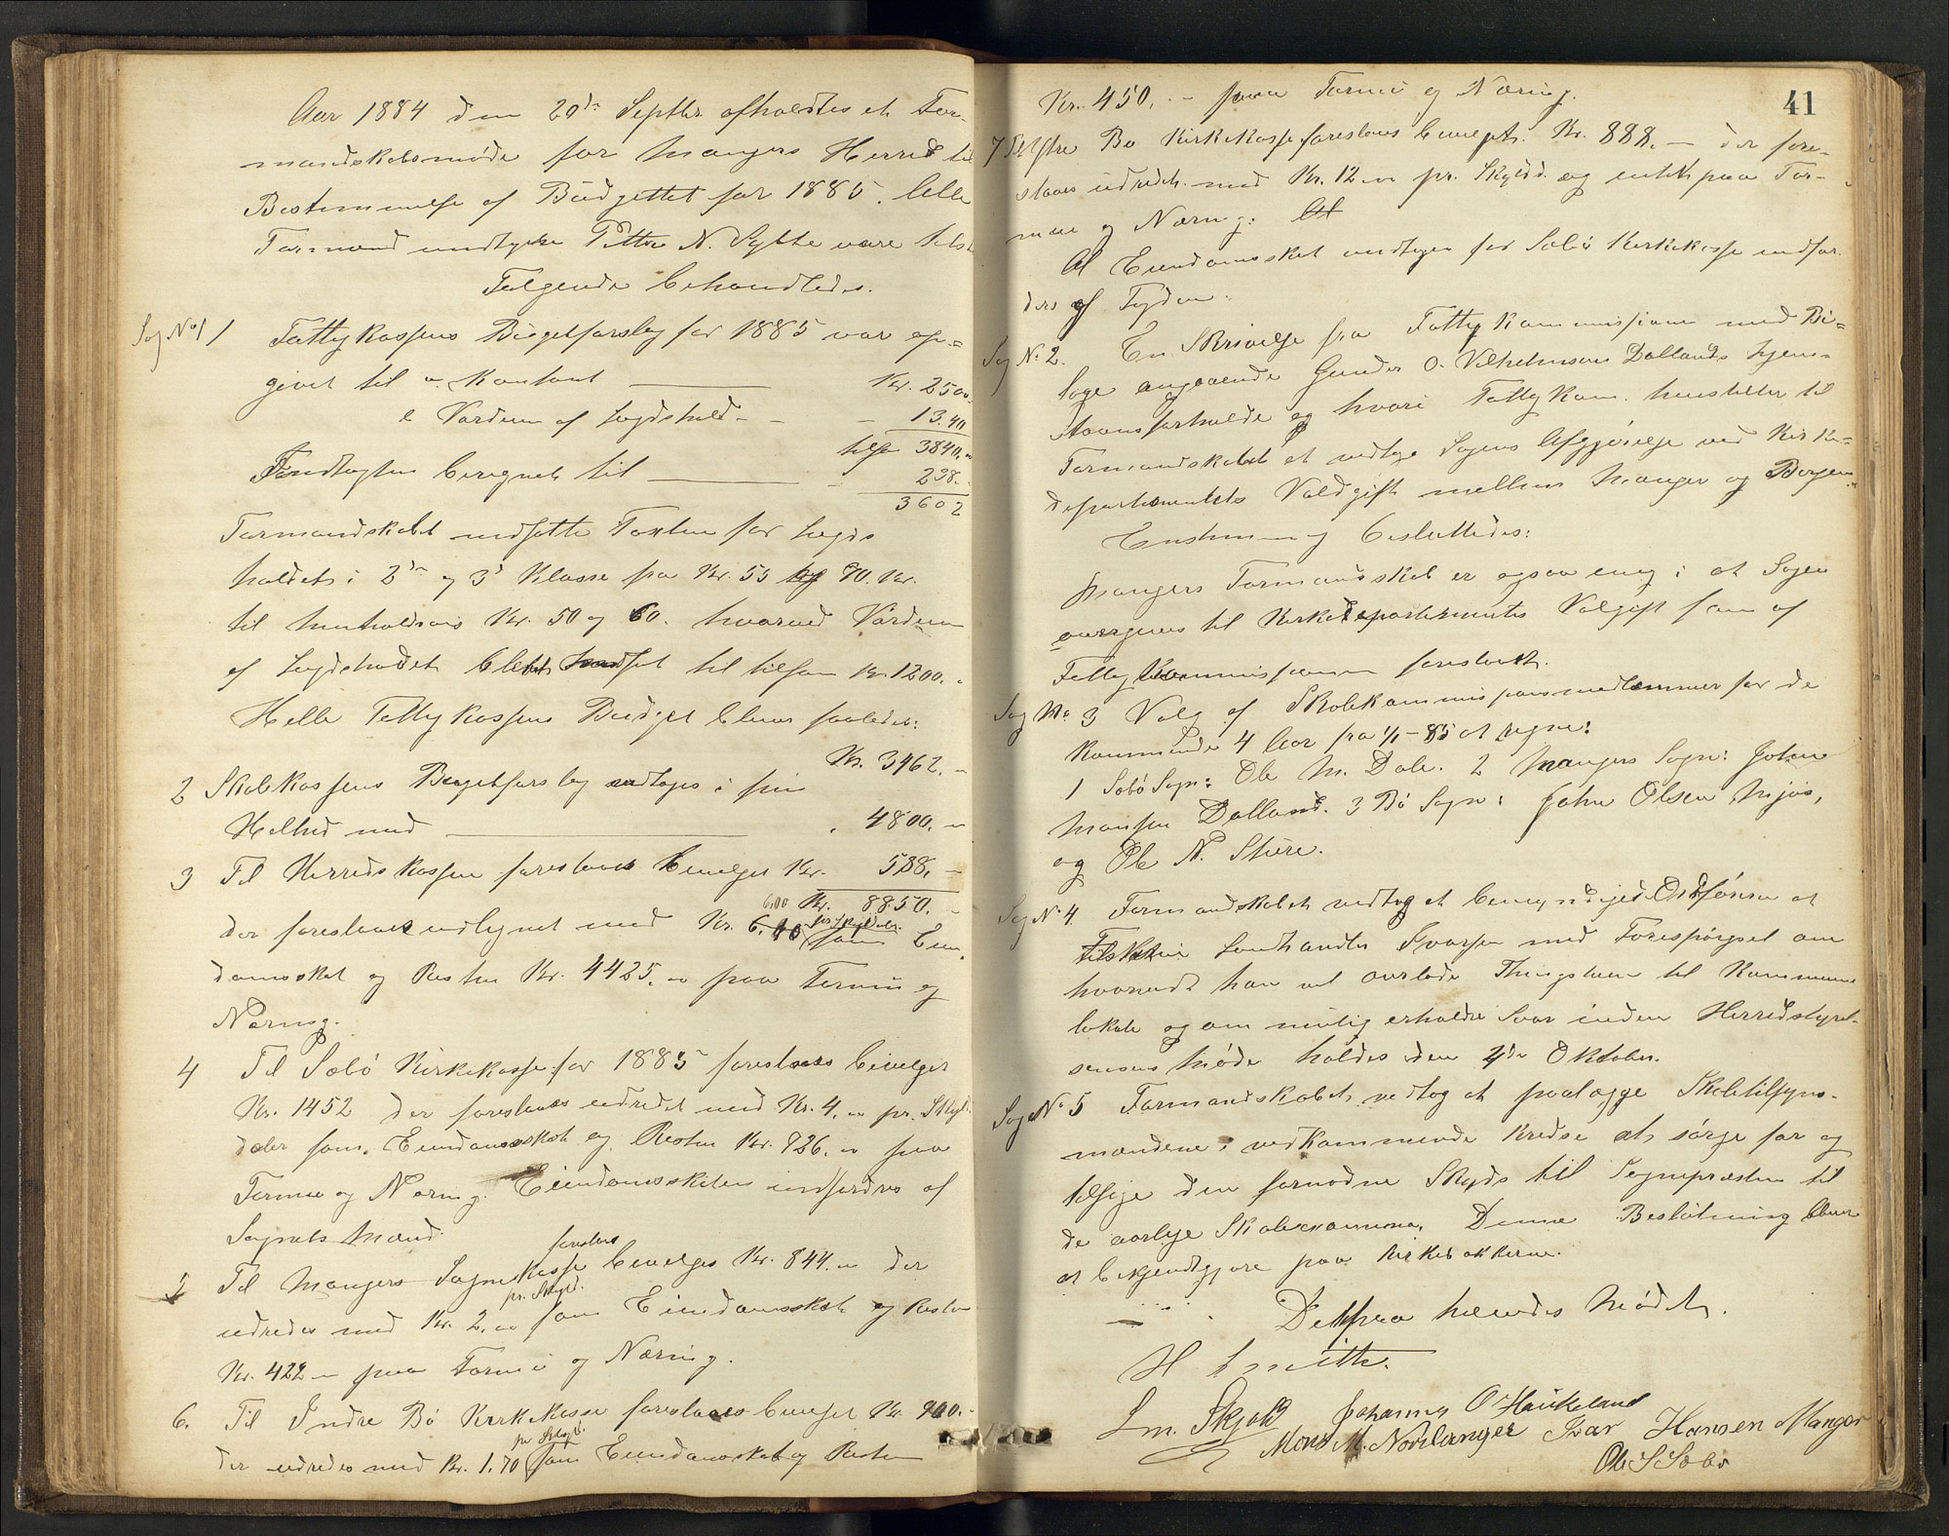 Aar 1884 den 29de Septbr. afholdtes et For-
mandskabsmøde for Mangers Herred til
Bestemmelse af Budgettet for 1885. Alle
Formænd undtagen Petter N. Sylte vare tilst.
Følgende behandledes.
Sag No 1 1 Fattigkassens Budgetforslag for 1885 var op-
givet til a. Kontant Kr. 2500.
b Værdien af Lægdshold - - 13.40
tils. 3840. "
Indtægten beregnet til - 238. -
3602
Formandskabet nedsatte Taxten for Lægds
holdet i 2den og 3die Klasse fra Kr. 55 og 70. Kr.
til henholdsvis Kr. 50 og 60. hvorved Værdien
af Lægdsholdet blev nedsat til tilsam Kr. 1200. -
Hele Fattigkassens Budget bliver saaledes:
Kr. 3462. -
2 Skolekassens Budgetforslag vedtages i sin
Helhed med " 4800. -
3 Til Herredskassen foreslaaes bevilget Kr. 588. -
6,00 Kr. 8850. -
pr. Skylddlr.
der foreslaaes udlignet med Kr. 6.00 som Eien-
domsskat og Resten Kr. 4425. " paa Formue og
Næring.
4 Til Sæbø Kirkekasse for 1885 foreslaaes bevilget
Kr. 1452 der foreslaaes udredet med Kr. 4. " pr. Skyld-
daler som Eiendomsskat og Resten Kr. 726. " paa
Formue og Næring. Eiendomsskaten indfordres af
Sognets Mænd.
foreslaaes
5 Til Mangers Sognekasse bevilges Kr. 844. " der
pr. Skyld.
udredes med Kr. 2. " som Eiendomsskat og Resten
Kr. 422 - paa Formue og Næring.
6. Til Indre Bø Kirkekasse foreslaaes bevilget Kr. 900. -
pr Skyld.
der udredes med Kr. 1.70 som Eiendomsskat og Resten
41
Kr. 450. - paa Formue og Næring.
7 Til Ytre Bø Kirkekasse foreslaaes bevilget Kr. 888. - der fore-
slaaes udredet med Kr. 12 " pr. Skyldd. og intet paa For-
mue og Næring.
Al Eiendomsskat undtagen for Sæbø Kirkekasse indfor-
dres af Fogden.
Sag No 2. En Skrivelse fra Fattigkommissionen med Bi-
lage angaaende Gunder O. Vilhelmsen Dollands Hjem-
stavnsforholde og hvori Fattigkom. henstiller til
Formandskabet at vedtage Sagens Afgjørelse ved Kirke-
departementets Voldgift mellem Manger og Bergen.
Enstemmig besluttedes:
Mangers Formandskab er ogsaa enig i at Sagen
overgives til Kirkedepartementets Volgift som af
Fattigkommissionen foreslaaet.
Sag No 3 Valg af Skolekommissionsmedlemmer for de
kommende 4 Aar fra 1/1-85 at regne:
1 Sæbø Sogn: Ole M. Dale. 2 Mangers Sogn: Johan
Monsen Dolland. 3 Bø Sogn: John Olsen Mjøs,
og Ole N. Sture.
Sag No 4. Formandskabet vedtog at bemyndige Ordføreren at
tilskrive Landhandler Ivarsen med Forespørgsel om
hvorvidt han vil overlade Thingstuen til Kommune
lokale og om mulig erholde Svar inden Herredstyrel-
sens Møde holdes den 4de Oktober.
Sag No 5 Formandskabet vedtog at paalægge Skoletilsyns-
mændene i vedkommende Kredse at sørge for og
tilsige den fornødne Skyds til Sognepræsten til
de aarlige Skoleexamina. Denne Beslutning bliver
at bekjendtgjøre paa Kirkebakkerne.
Dermed hævedes Mødet.
H Smith.
Lm. Skjold Johannes O Haukeland
Mons M. Nordanger Ivar Hansen Manger
Ole S Sæbø